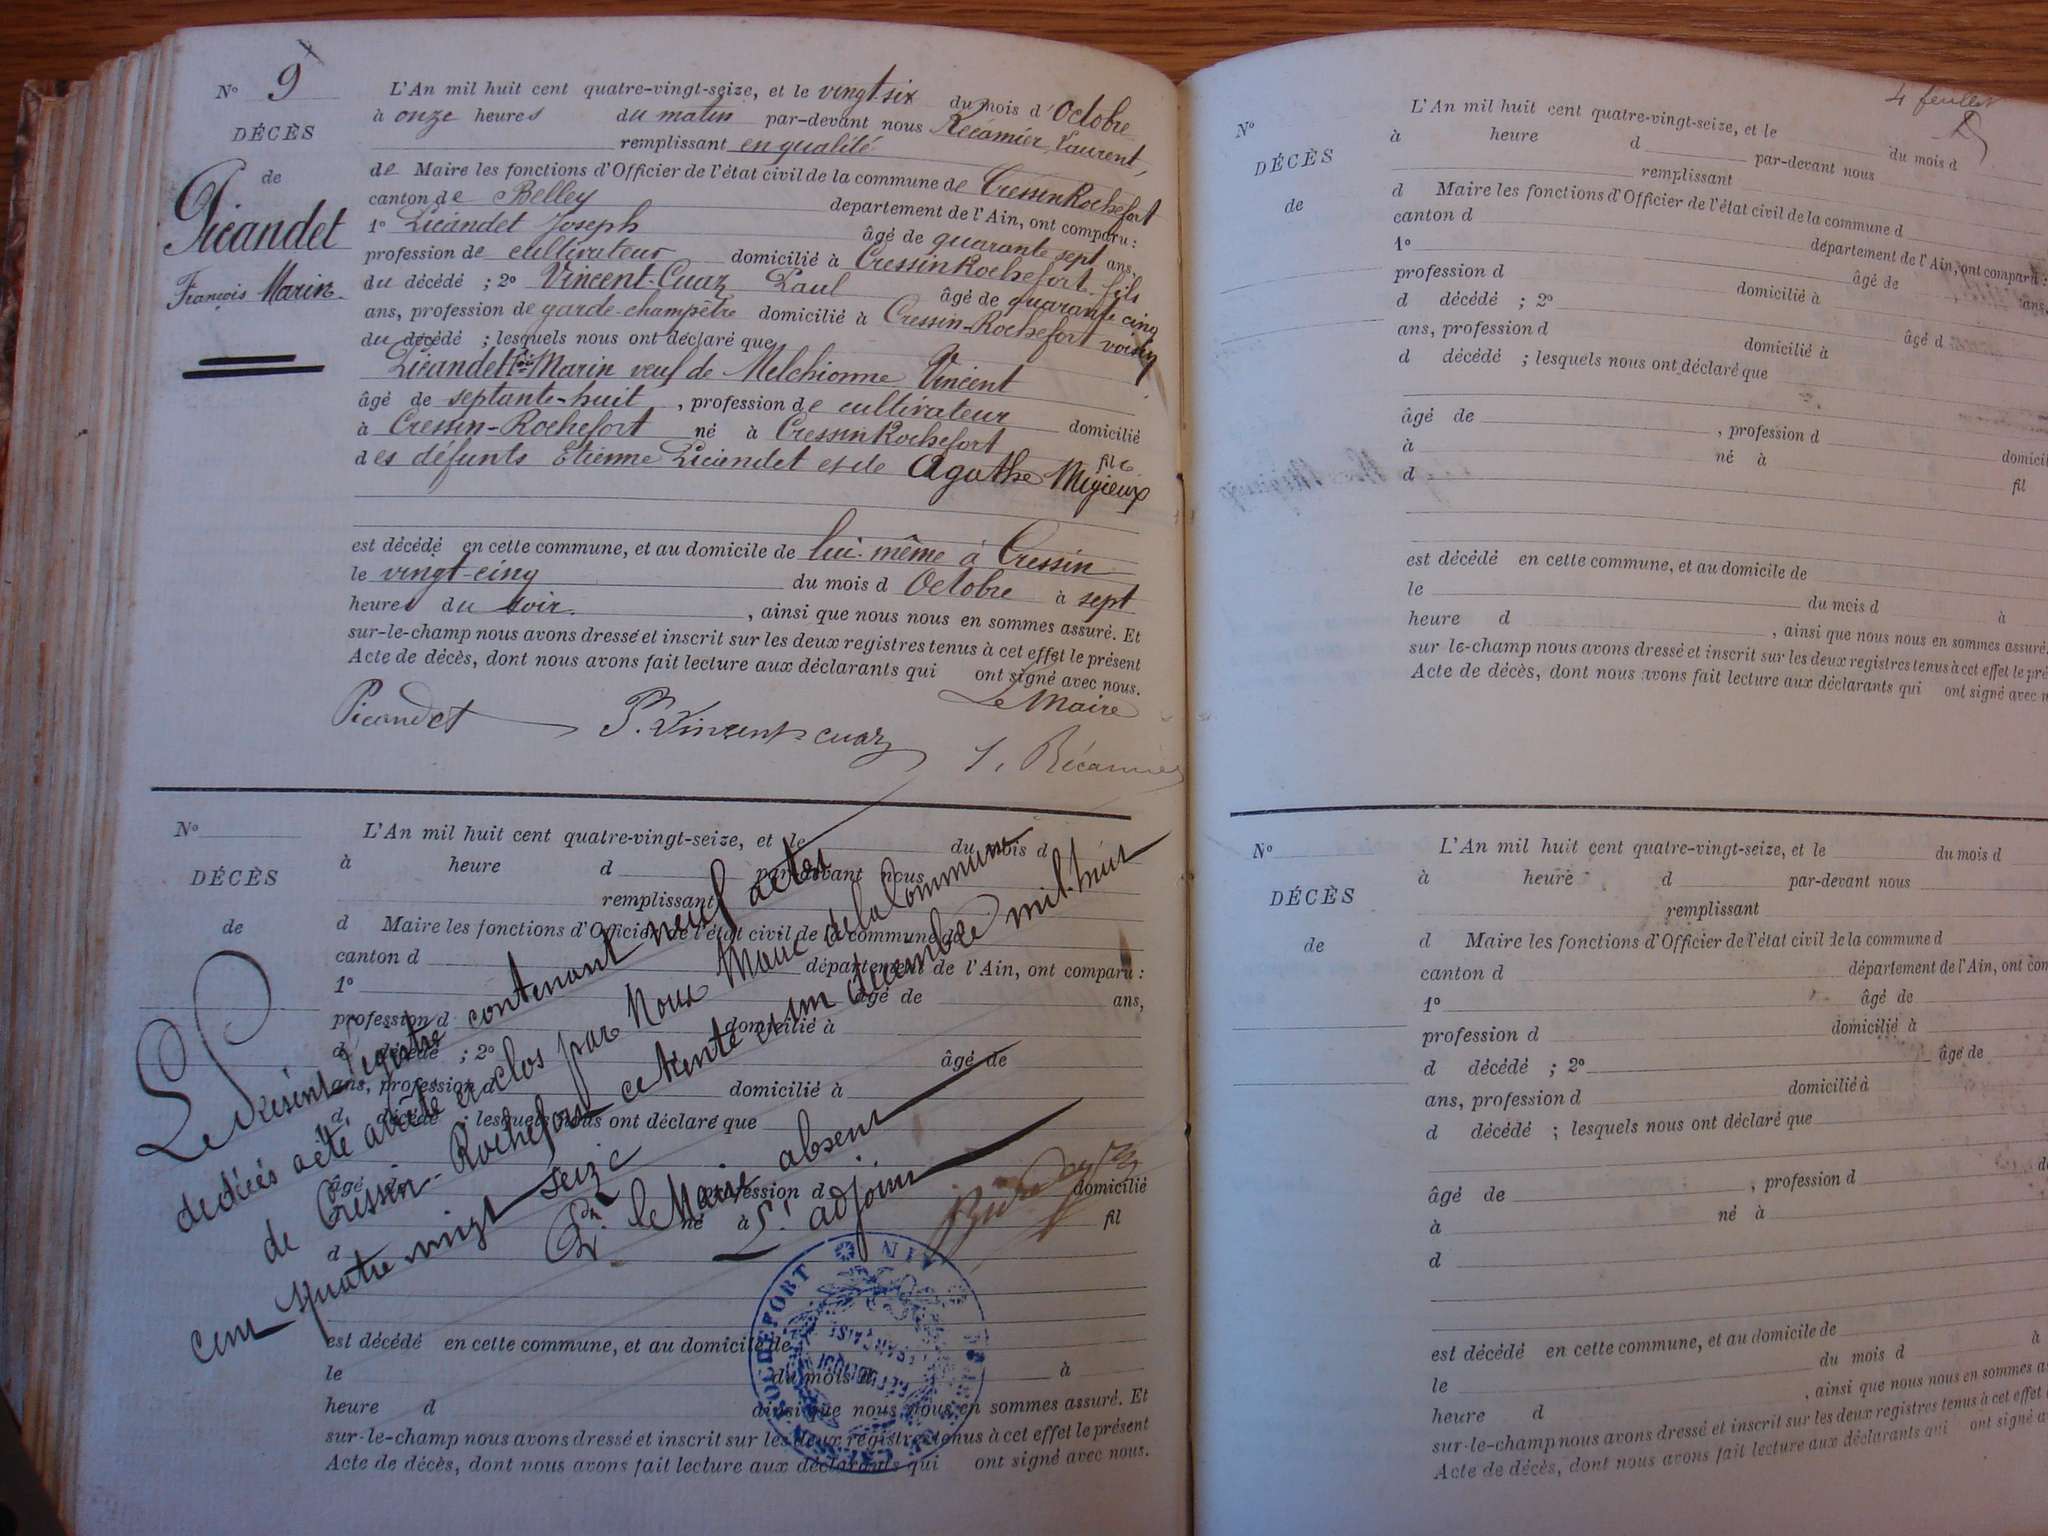 N° 9
DÉCÈS
de
Picandet
François Marin
L'An mil huit cent quatre-vingt-seize, et le vingt-six du mois d'Octobre
à onze heures du matin par-devant nous Récamier Laurent,
remplissant en qualité
de Maire les fonctions d'Officier de l'état civil de la commune de Cressin Rochefort
canton de Belley département de l'Ain, ont comparu :
1° Picandet Joseph âgé de quarante sept ans,
profession de cultivateur domicilié à Cressin Rochefort fils
du décédé ; 2° Vincent-Cuaz Paul âgé de quarante cinq
ans, profession de garde-champêtre domicilié à Cressin-Rochefort voisin
du décédé ; lesquels nous ont déclaré que
Picandet Fois Marin veuf de Melchionne Vincent
âgé de septante-huit, profession de cultivateur domicilié
à Cressin-Rochefort né à Cressin Rochefort fils
des défunts Etienne Picandet et de Agathe Migieux
est décédé en cette commune, et au domicile de lui-même à Cressin
le vingt-cinq du mois d Octobre à sept
heures du soir, ainsi que nous nous en sommes assuré. Et
sur-le-champ nous avons dressé et inscrit sur les deux registres tenus à cet effet le présent
Acte de décès, dont nous avons fait lecture aux déclarants qui ont signé avec nous.
Le Maire
Picandet P. Vincent cuaz L. Récamier
N°
DÉCÈS
de
L'An mil huit cent quatre-vingt-seize, et le du mois d
à heure d par-devant nous
remplissant
d Maire les fonctions d'Officier de l'état civil de la commune de
canton d département de l'Ain, ont comparu :
1° âgé de ans,
profession d domicilié à
d décédé ; 2° âgé de
ans, profession d domicilié à
d décédé ; lesquels nous ont déclaré que
âgé de profession d domicilié
né à fil
d
est décédé en cette commune, et au domicile de
le du mois d à
heure d ainsi que nous nous en sommes assuré. Et
sur-le-champ nous avons dressé et inscrit sur les deux registres tenus à cet effet le présent
Acte de décès, dont nous avons fait lecture aux déclarants qui ont signé avec nous.
Le Présent Registre contenant neuf actes
de décès a été arrêté et clos par Nous Maire de la Commune
de Cressin-Rochefort ce trente et un décembre mil huit
cent quatre vingt seize
Pr. le Maire absent
L'adjoint
ROCHEFORT
AIN
4 feuillet
N°
DÉCÈS
de
L'An mil huit cent quatre-vingt-seize, et le du mois d
à heure d par-devant nous
remplissant
d Maire les fonctions d'Officier de l'état civil de la commune d
canton d département de l'Ain, ont comparu :
1° âgé de ans,
profession d domicilié à
d décédé ; 2° âgé d
ans, profession d domicilié à
d décédé ; lesquels nous ont déclaré que
âgé de , profession d domicil
à né à fil
d
est décédé en cette commune, et au domicile de
le du mois d à
heure d , ainsi que nous nous en sommes assuré.
sur-le-champ nous avons dressé et inscrit sur les deux registres tenus à cet effet le pré
Acte de décès, dont nous avons fait lecture aux déclarants qui ont signé avec n
N°
DÉCÈS
de
L'An mil huit cent quatre-vingt-seize, et le du mois d
à heure d par-devant nous
remplissant
d Maire les fonctions d'Officier de l'état civil de la commune d
canton d département de l'Ain, ont com
1° âgé de
profession d domicilié à
d décédé ; 2° âgé de
ans, profession d domicilié à
d décédé ; lesquels nous ont déclaré que
âgé de , profession d do
à né à
d
est décédé en cette commune, et au domicile de
le du mois d à
heure d , ainsi que nous nous en sommes as
sur-le-champ nous avons dressé et inscrit sur les deux registres tenus à cet effet
Acte de décès, dont nous avons fait lecture aux déclarants qui ont signé a